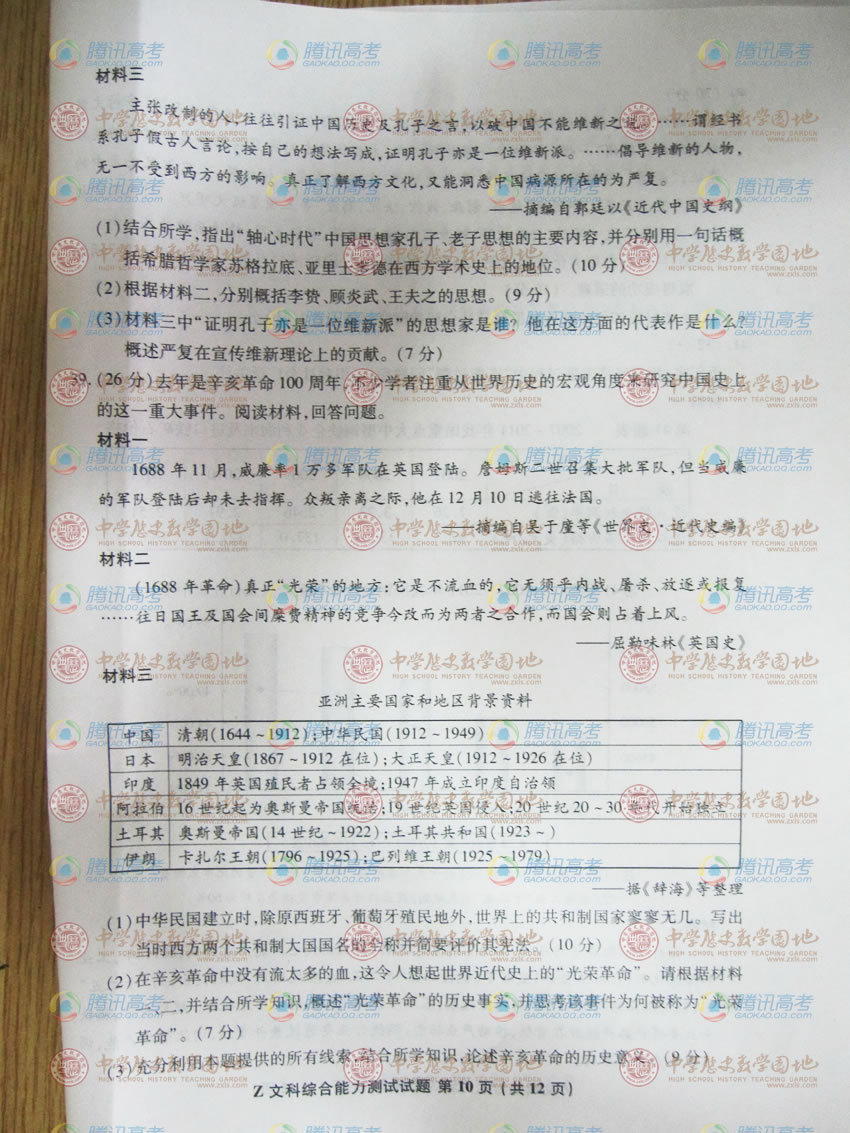 材料三
主张改制的人,往往引证中国历史及孔子之言,以破中国不能维新之说。……谓经书
系孔子假古人言论,按自己的想法写成,证明孔子亦是一位维新派。……倡导维新的人物,
无一不受到西方的影响。真正了解西方文化,又能洞悉中国病源所在的为严复。
——摘编自郭廷以《近代中国史纲》
(1)结合所学,指出“轴心时代”中国思想家孔子、老子思想的主要内容,并分别用一句话概
括希腊哲学家苏格拉底、亚里士多德在西方学术史上的地位。(10 分)
(2)根据材料二,分别概括李贽、顾炎武、王夫之的思想。(9 分)
(3)材料三中“证明孔子亦是一位维新派”的思想家是谁?他在这方面的代表作是什么?
概述严复在宣传维新理论上的贡献。(7 分)
39.(26 分)去年是辛亥革命 100 周年,不少学者注重从世界历史的宏观角度来研究中国史上
的这一重大事件。阅读材料,回答问题。
材料一
1688 年 11 月,威廉率 1 万多军队在英国登陆。詹姆斯二世召集大批军队,但当威廉
的军队登陆后却未去指挥。众叛亲离之际,他在 12 月 10 日逃往法国。
——摘编自吴于廑等《世界史·近代史编》
材料二
(1688 年革命)真正“光荣”的地方:它是不流血的,它无须乎内战、屠杀、放逐或报复
……往日国王及国会间糜费精神的竞争今改而为两者之合作,而国会则占着上风。
——屈勒味林《英国史》
材料三
亚洲主要国家和地区背景资料
中国 清朝(1644～1912);中华民国(1912～1949)
日本 明治天皇(1867～1912 在位);大正天皇(1912～1926 在位)
印度 1849 年英国殖民者占领全境;1947 年成立印度自治领
阿拉伯 16 世纪起为奥斯曼帝国统治;19 世纪英国侵入;20 世纪 20～30 年代开始独立
土耳其 奥斯曼帝国(14 世纪～1922);土耳其共和国(1923～)
伊朗 卡扎尔王朝(1796～1925);巴列维王朝(1925～1979)
——据《辞海》等整理
(1)中华民国建立时,除原西班牙、葡萄牙殖民地外,世界上的共和制国家寥寥无几。写出
当时西方两个共和制大国国名的全称并简要评价其宪法。(10 分)
(2)在辛亥革命中没有流太多的血,这令人想起世界近代史上的“光荣革命”。请根据材料
一、二,并结合所学知识,概述“光荣革命”的历史事实,并思考该事件为何被称为“光荣
革命”。(7 分)
(3)充分利用本题提供的所有线索,结合所学知识,论述辛亥革命的历史意义。(9 分)
Z 文科综合能力测试试题 第 10 页(共 12 页)